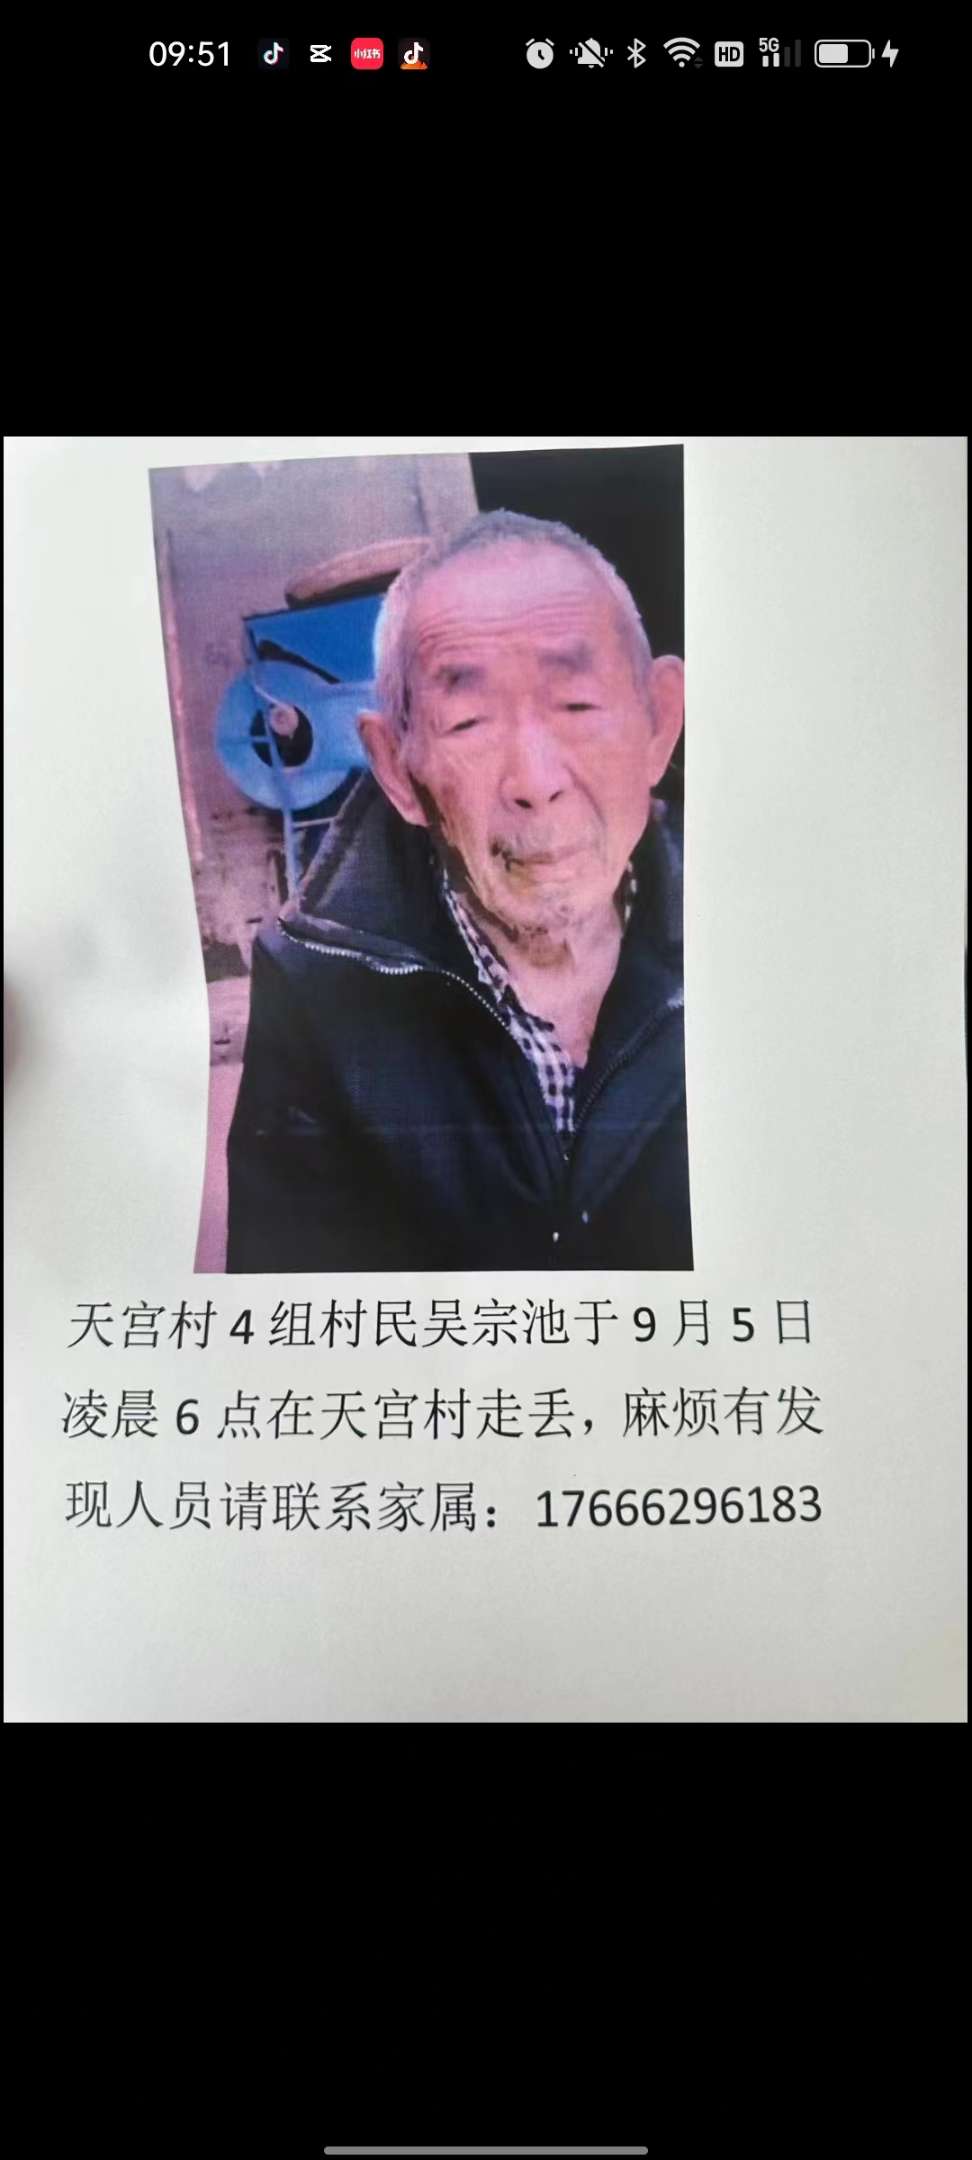 09:51 小红书 HD 5G
天宫村 4 组村民吴宗池于 9 月 5 日
凌晨 6 点在天宫村走丢，麻烦有发
现人员请联系家属：17666296183